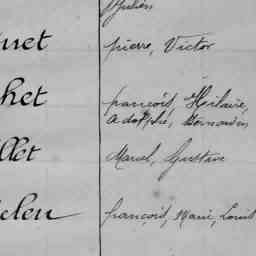 Julien
uet pierre, Victor
het françois, Hilaire,
Adolphe, Bernardin
llet Marcel, Gustave
elen françois, Marie, Louis